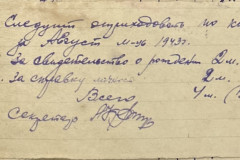 Следует оприходовать по к
за Август м-ць 1943г.
За свидетельство о рожден 2 м.
За справку 2 м.
Всего 4 м.
Секретар